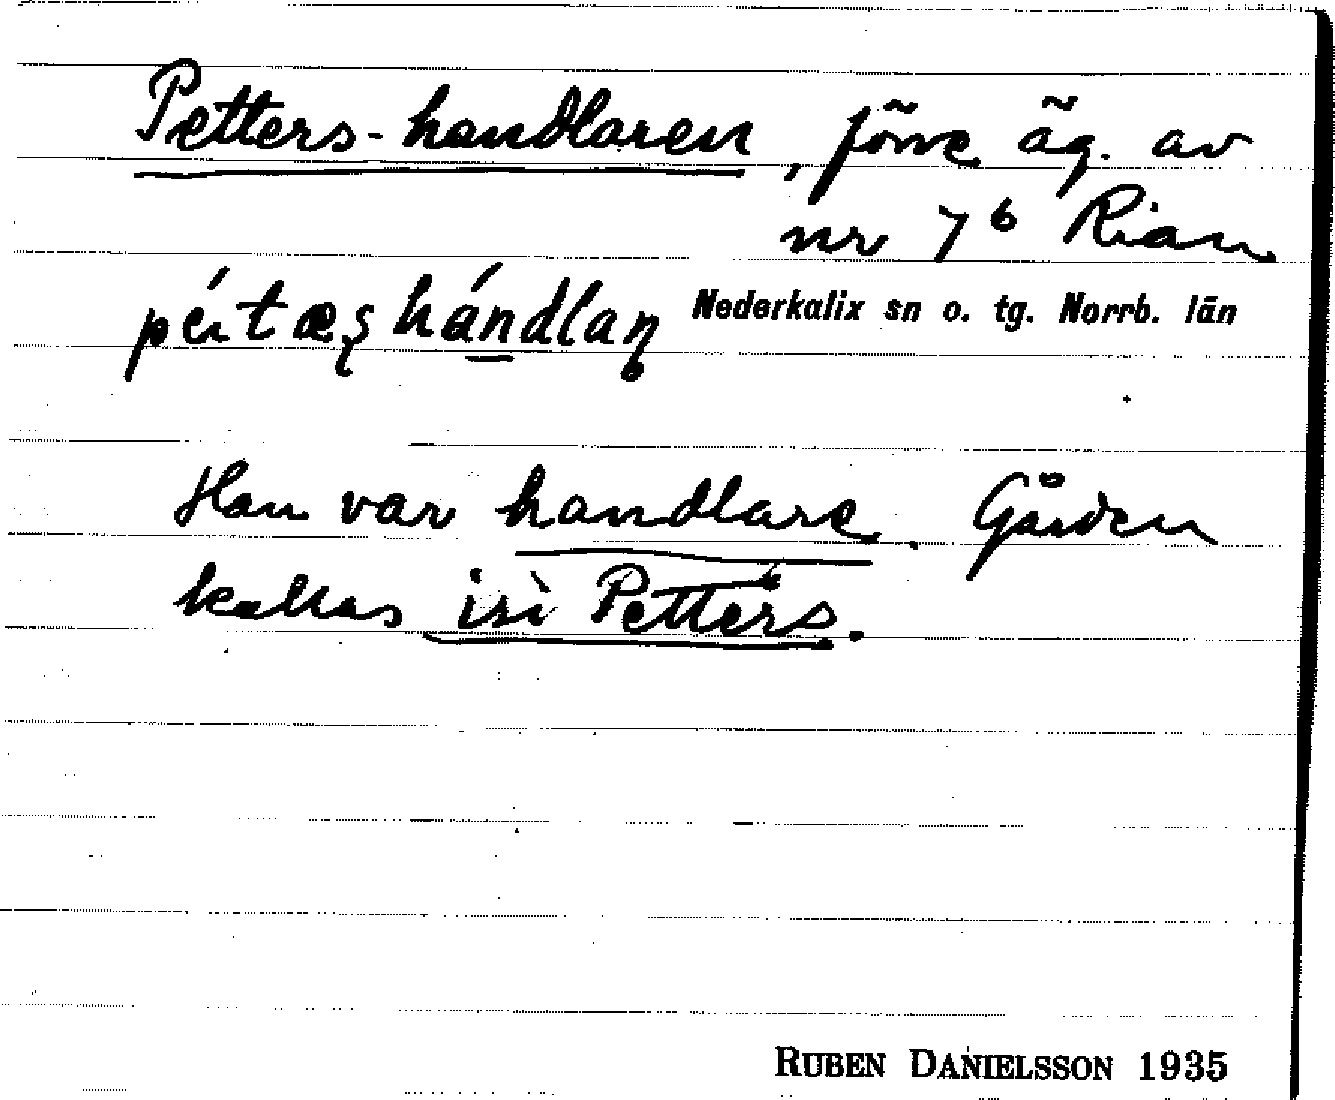 Petters-handlaren, förre äg. av
nr 7⁶ Rian
péitæʂ hándlaɳ Nederkalix sn o. tg. Norrb. län
Han var handlare. Gården
kallas isi Petters.
RUBEN DANIELSSON 1935